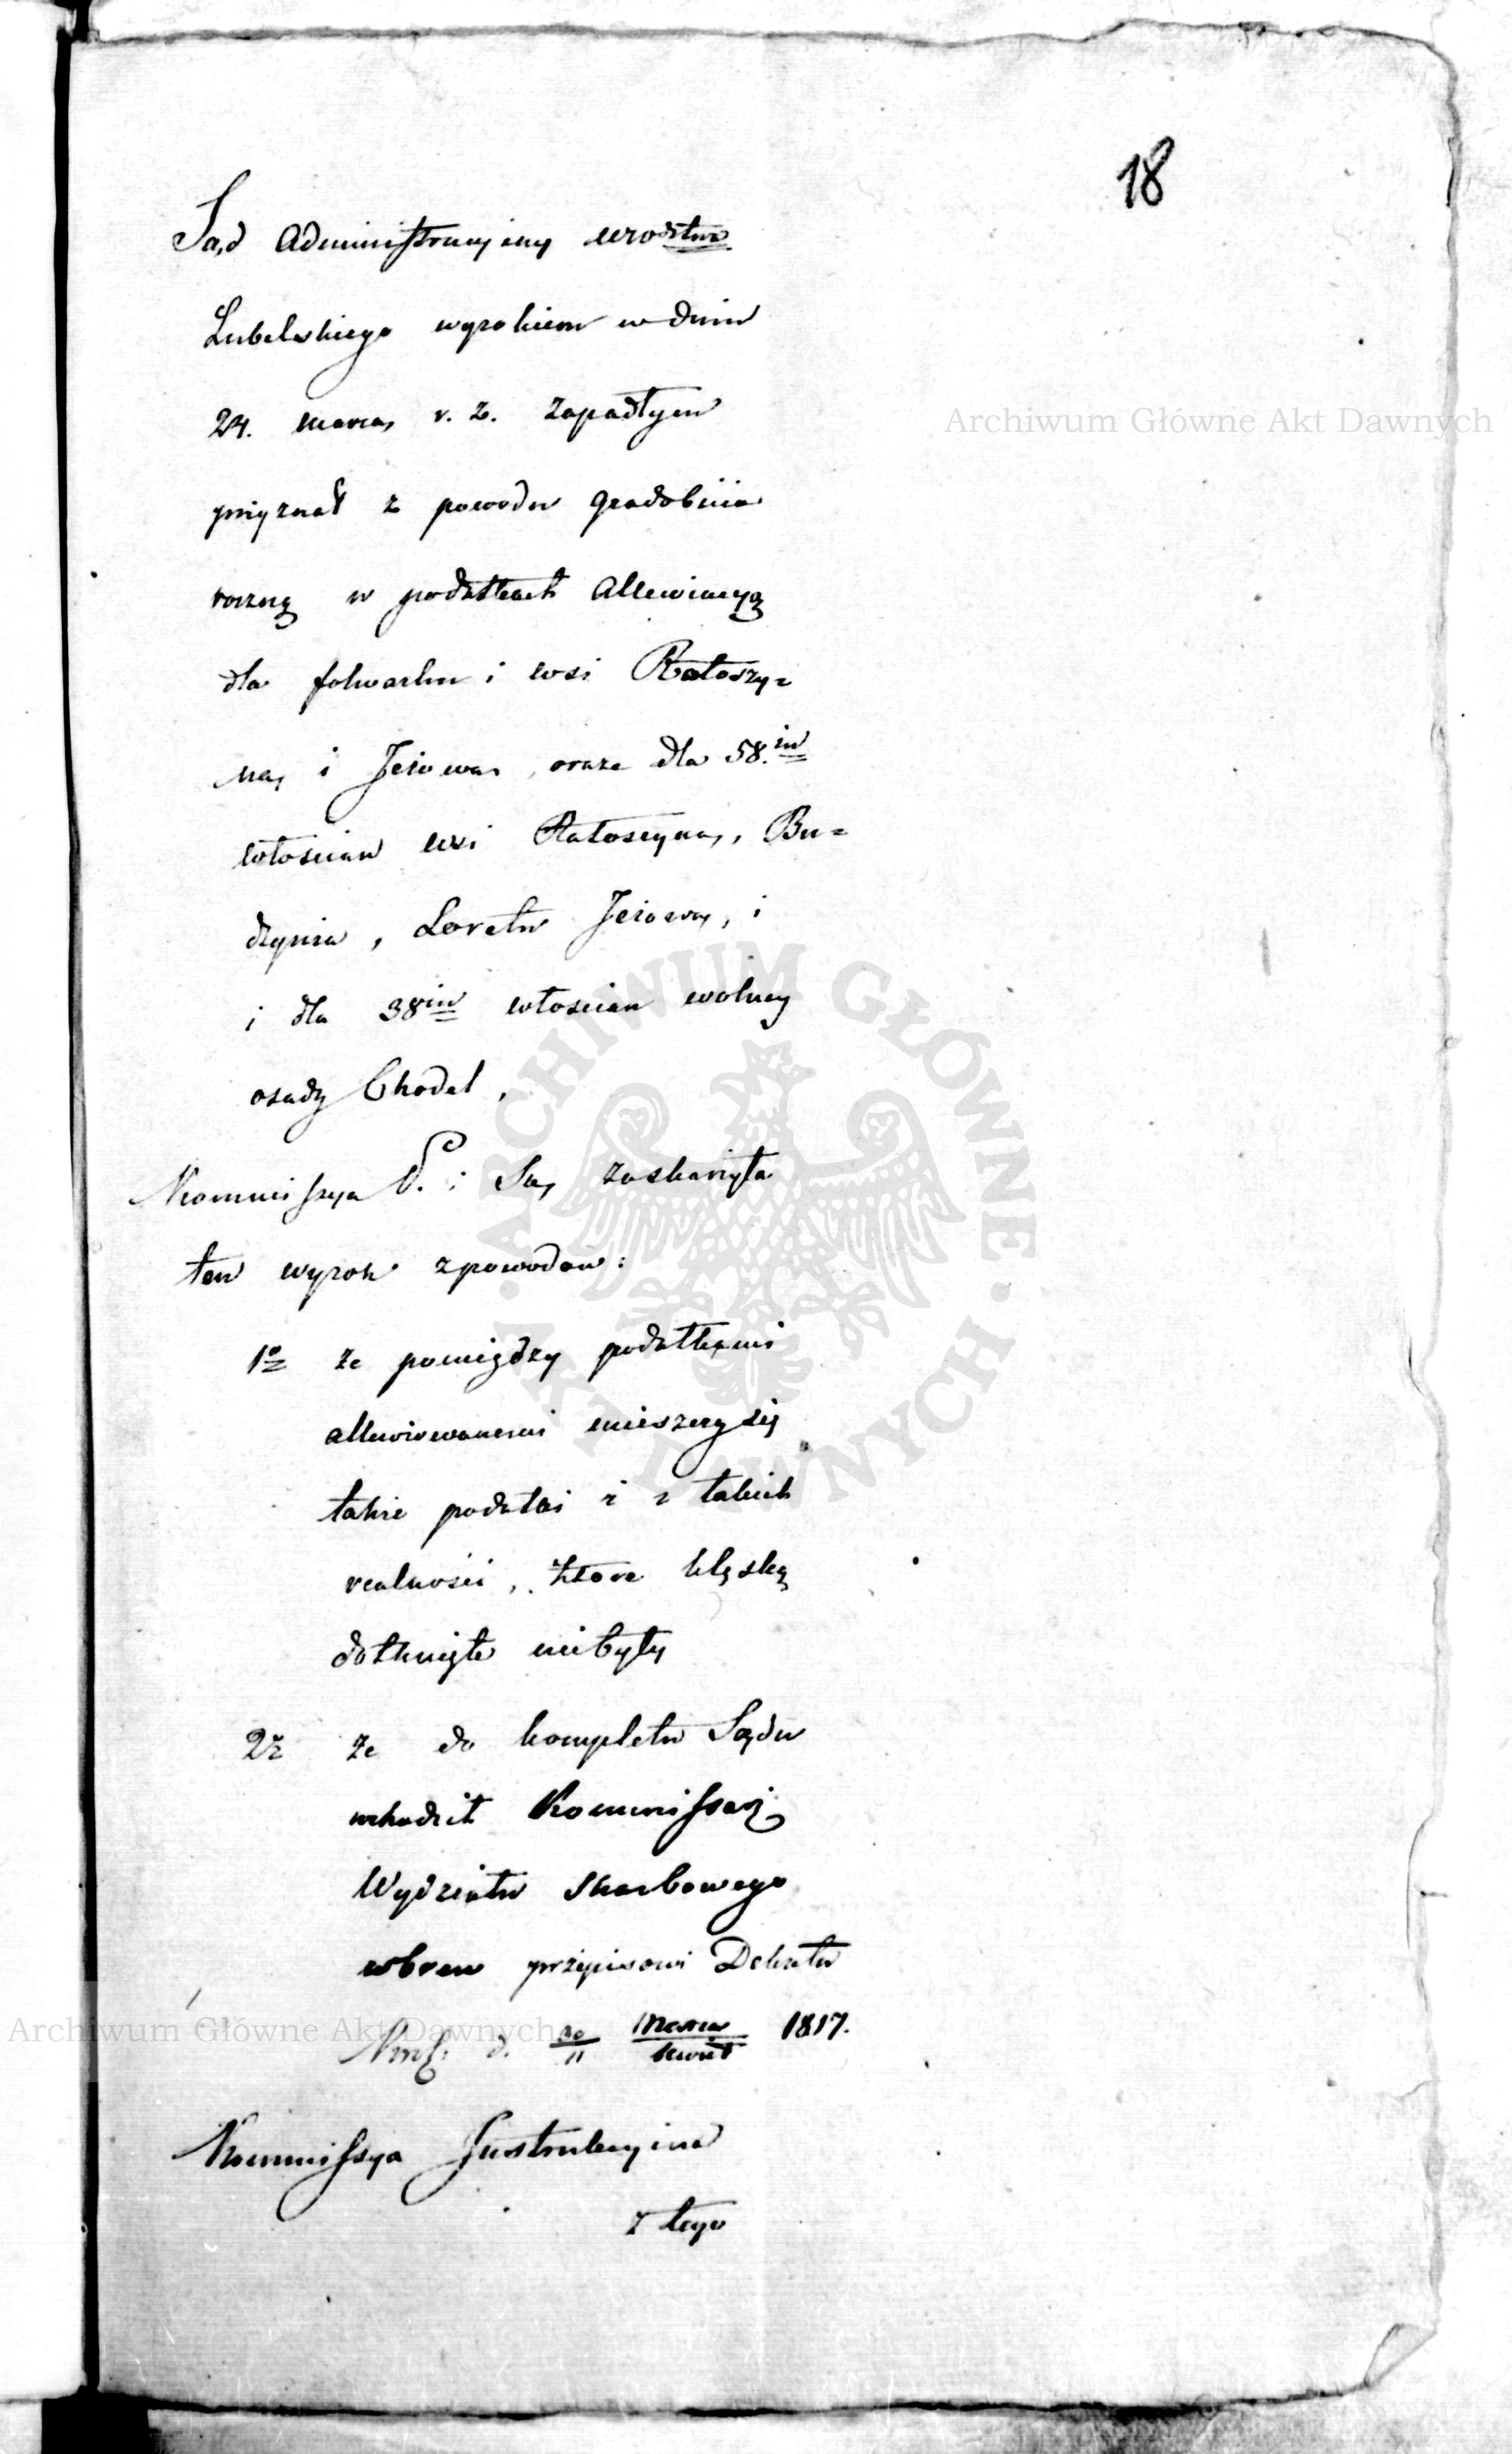 18
Sąd Administracyiny wodztwa
Lubelskiego wyrokiem w dniu
24. marca r. z. zapadłym
przyznał z powodu gradobicia
roczną w podatkach allewiacyą
dla folwarku i wsi Ratoszy=
na, i Jeżowa, oraz dla 58.iu
włościan wsi Ratoszyna, Bu=
dzynia, Loretu Jeżowa, i
i dla 38iu włościan wolney
osady Chodel,
Kommissya P. i Sk, zaskarżyła
ten wyrok z powodów:
1o że pomiędzy podatkami
allewiowanemi mieszczą się
także podatki i z takich
realności, które klęską
dotknięte niebyły
2o że do kompletu Sądu
wchodził Kommissarz
Wydziału Skarbowego
wbrew przepisowi Dekretu
Król: d. 30/11 Marca/kwiet 1817.
Kommissya Instrukcyina
z tego
Archiwum Główne Akt Dawnych
ARCHIWUM GŁÓWNE AKT DAWNYCH
Archiwum Główne Akt Dawnych